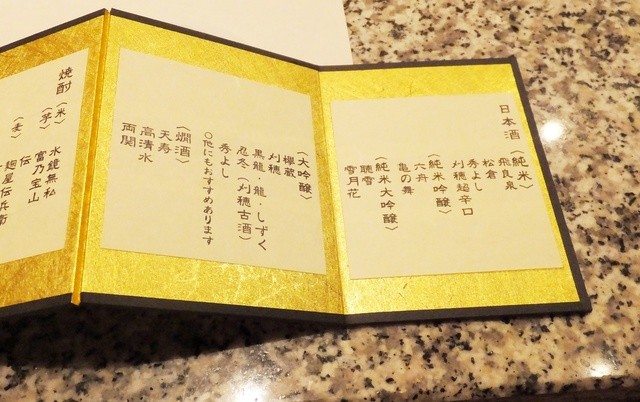 日本酒
（純米）
飛良泉
松倉
秀よし
刈穂超辛口
（純米吟醸）
六舟
亀の舞
（純米大吟醸）
聴雪
雪月花
（大吟醸）
欅蔵
刈穂
黒龍・龍・しずく
忍冬（刈穂古酒）
秀よし
○他にもおすすめあります
（燗酒）
天寿
高清水
両関
焼酎
（米）
水鏡無私
（芋）
富乃宝山
伝
（麦）
麹屋伝兵衛